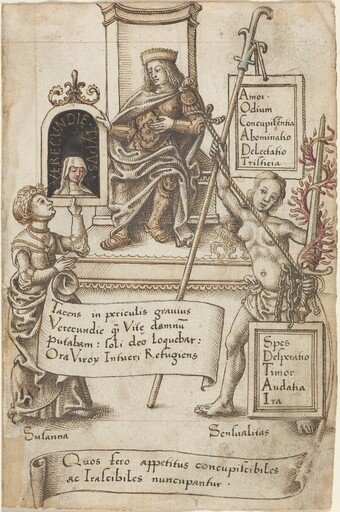 VERECUNDIE TIPVS
Amor
Odium
Concupiscentia
Abominatio
Delectatio
Tristicia
Iacens in periculis gravius
Verecundie q̃ Vitę damnũ
Putabam: soli deo loquebar:
Ora Virox Intueri Refugiens
Spes
Desperatio
Timor
Audatia
Ira
Susanna
Sensualitas
Quos fero appetitus concupiscibiles
ac Irascibiles nuncupantur.